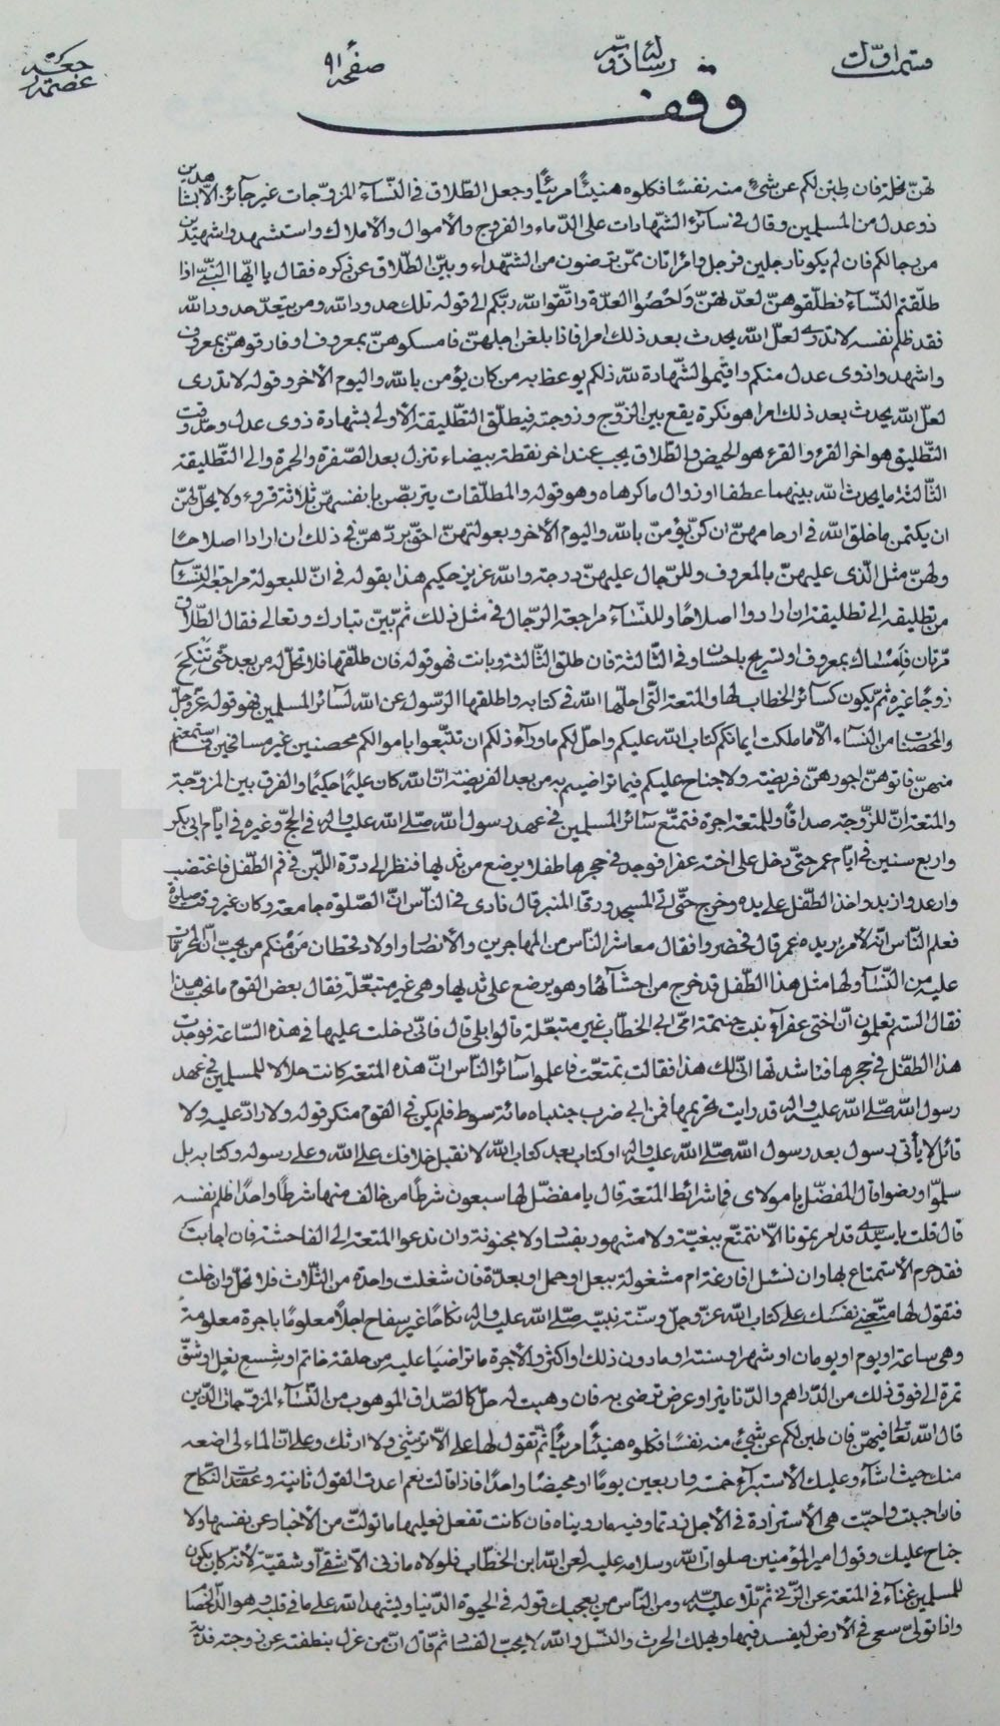 قسمت اول رسالة صفحه ٩١
وقف
تهنّ نحلة فان طبن لكم عن شئ منه نفسًا فكلوه هنيئًا مريئًا وجعل الطّلاق فى النّسآء المزوّجات غير جآئز الّا بشاهدين
ذوى عدل من المسلمين وقال فى سآئر الشّهادات على الدّماء والفروج والأموال والأملاك واستشهدوا شهيدين
من رجالكم فان لم يكونا رجلين فرجل وامرأتان ممّن ترضون من الشّهداء وبيّن الطّلاق عن ذكره فقال يا ايّها النّبىّ اذا
طلّقتم النّسآء فطلّقوهنّ لعدّتهنّ وَاحْصُوا العدّة واتّقوا الله ربّكم الى قوله تلك حدود الله ومن يتعدّ حدود الله
فقد ظلم نفسه لا تدرى لعلّ الله يحدث بعد ذلك امرا فاذا بلغن اجلهنّ فامسكوهنّ بمعروف او فارقوهنّ بمعروف
واشهدوا ذوى عدل منكم واقيموا الشّهادة لله ذلكم يوعظ به من كان يؤمن بالله واليوم الأخر وقوله لا تدرى
لعلّ الله يحدث بعد ذلك امرا هو نكرة يقع بين الزّوج وزوجته فيطلّق التطّليقة الأولى بشهادة ذوى عدل وحدّ وقت
التّطليق هو اخر القرء والقرء هو الحيض والطّلاق يجب عند اخر نقطة بيضاء تنزل بعد الصّفرة والحمرة والى التطّليقة
الثّالثة ما يحدث الله بينهما عطفا او زوال ما كرهاه وهو قوله والمطلّقات يتربّصن بانفسهنّ ثلاثة قروء ولا يحلّ لهنّ
ان يكتمن ما خلق الله فى ارحامهنّ ان كنّ يؤمنّ بالله واليوم الأخر وبعولتهنّ احقّ بردّهنّ فى ذلك ان ارادا اصلاحا
ولهنّ مثل الّذى عليهنّ بالمعروف وللرّجال عليهنّ درجة والله عزيز حكيم هذا بقوله فى انّ للبعولة مراجعة النّسآء
من تطليقة الى تطليقة ان ارادوا اصلاحًا وللنّسآء مراجعة الرّجال فى مثل ذلك ثمّ بيّن تبارك وتعالى فقال الطّلاق
مرّتان فَاِمْسَاك بمعروف او تسريح باحسان وفى الثّالثة فان طلّق الثّالثة وبانت فهو قوله فان طلّقها فلا تحلّ له من بعد حتّى تَنْكِحَ
زوجًا غيره ثمّ يكون كسآئر الخطاب لها والمتعة الّتى احلّها الله فى كتابه واطلقها الرّسول عن الله لسآئر المسلمين فهو قوله عزّ وجلّ
والمحصنات من النّسآء الّا ما ملكت ايمانكم كتاب الله عليكم واحلّ لكم ماورآء ذلكم ان تبتّغوا باموالكم محصنين غير مسافحين فما استمتعتم
منهنّ فاتوهنّ اجورهنّ فريضة ولا جناح عليكم فيما تراضيتم به من بعد الفريضة انّ الله كان عليمًا حكيمًا والفرق بين المزوّجة
والمتعة انّ للزّوجة صداقًا وللمتعة اجرة فتمتّع سآئر المسلمين فى عهد رسول الله صلّى الله عليه واله فى الحجّ وغيره فى ايّام ابى بكر
واربع سنين فى ايّام عمر حتّى دخل على اخته عفرا فوجد فى حجرها طفلا يرضع من ثديها فنظر الى درّة اللّبن فى فم الطّفل فاغضب
وارعد وازبد واخذ الطّفل على يده وخرج حتّى اتى المسجد ورقا المنبر قال نادى فى النّاس انّ الصّلوة جامعة وكان غير وقت صلوة
فعلم النّاس انّه لأمر يريده عمر قال فحضروا فقال معاشر النّاس من المهاجرين والأنصار واولاد قحطان مَن منكم من يحبّ انّ المحرّمات
عليه من النّسآء ولها مثل هذا الطّفل قد خرج من احشآئها وهو يرضع على ثديها وهى غير متبعّلة فقال بعض القوم ما نحبّ هذا
فقال الستم تعلمون انّ اختى عفرآء بنت حنتمة امّى وابى الخطّاب غير متبعّلة قالوا بلى قال فانّى دخلت عليها فى هذه السّاعة فوجدت
هذا الطّفل فى حجرها فناشدتها انّى لك هذا فقالت تمتعّت فاعلموا سآئر النّاس انّ هذه المتعة كانت حلالا للمسلمين فى عهد
رسول الله صلّى الله عليه واله قد رايت تحريمها فمن ابى ضرب جنباه مائة سوط فلم يكن فى القوم منكر قوله ولا رادّ عليه ولا
قائل لا يأتى رسول بعد رسول الله صلّى الله عليه واله او كتاب بعد كتاب الله لا نقبل خلافك على الله وعلى رسوله وكتابه بل
سلّموا ورضوا قال المفضّل يا مولاى فما شرائط المتعة قال يا مفضّل لها سبعون شرطًا من خالف منها شرطًا واحدًا ظلم نفسه
قال قلت يا سيّدى قد امرتمونا الّا نتمتّع ببغيّة ولا مشهورة بفساد ولا مجنونة وان ندعوا المتعة الى الفاحشة فان اجابت
فقد حرم الأستمتاع بها وان نسئل افارغة ام مشغولة ببعل او حمل او بعدّة فان شغلت واحدة من الثّلاث فلا تحلّ وان خلت
فتقول لها متّعينى نفسَك على كتاب الله عزّ وجلّ وسنّة نبيّه صلّى الله عليه واله نكاحًا غير سفاح اجلًا معلومًا باجرة معلومة
وهى ساعة او يوم او يومان او شهر او سنة او مادون ذلك او اكثر والأجرة ما تراضيا عليه من حلقة خاتم او شِسع نعل او شقّ
تمرة الى فوق ذلك من الدّراهم والدّنانير او عرض ترضى به فان وهبت له حلّ كالصّداق الموهوب من النّسآء المزوّجات الّذين
قال الله تعالى فيهنّ فان طبن لكم عن شئ منه نفسًا فكلوه هنيئًا مريئًا ثمّ تقول لها على الّا ترثينى ولا ارثك وعلى انّ الماء لى اضعه
منك حيث اشآء وعليك الأستبرآء خمسة واربعين يومًا او محيضًا واحدًا فاذا قالت نعم اعدت القول ثانية وعقدت النّكاح
فان احببت واحبّت هى الأستزادة فى الأجل زدتما وفيه مارويناه فان كانت تفعل فعليها ما تولّت من الأخبار عن نفسها ولا
جناح عليك وقول امير المؤمنين صلوات الله وسلامه عليه لعن الله ابن الخطّاب فلولاه ما زنى الّا شقى او شقيّة لأنّه كان يكون
للمسلمين غناء فى المتعة عن الزّنى ثمّ تلا عليه السّلام ومن النّاس من يعجبك قوله فى الحيوة الدّنيا ويشهد الله على ما فى قلبه وهو الدّ الخصام
واذا تولّى سعى فى الأرض ليفسد فيها ويهلك الحرث والنّسل والله لا يحبّ الفساد ثمّ قال انّ من عزل بنطفته عن زوجته فدية